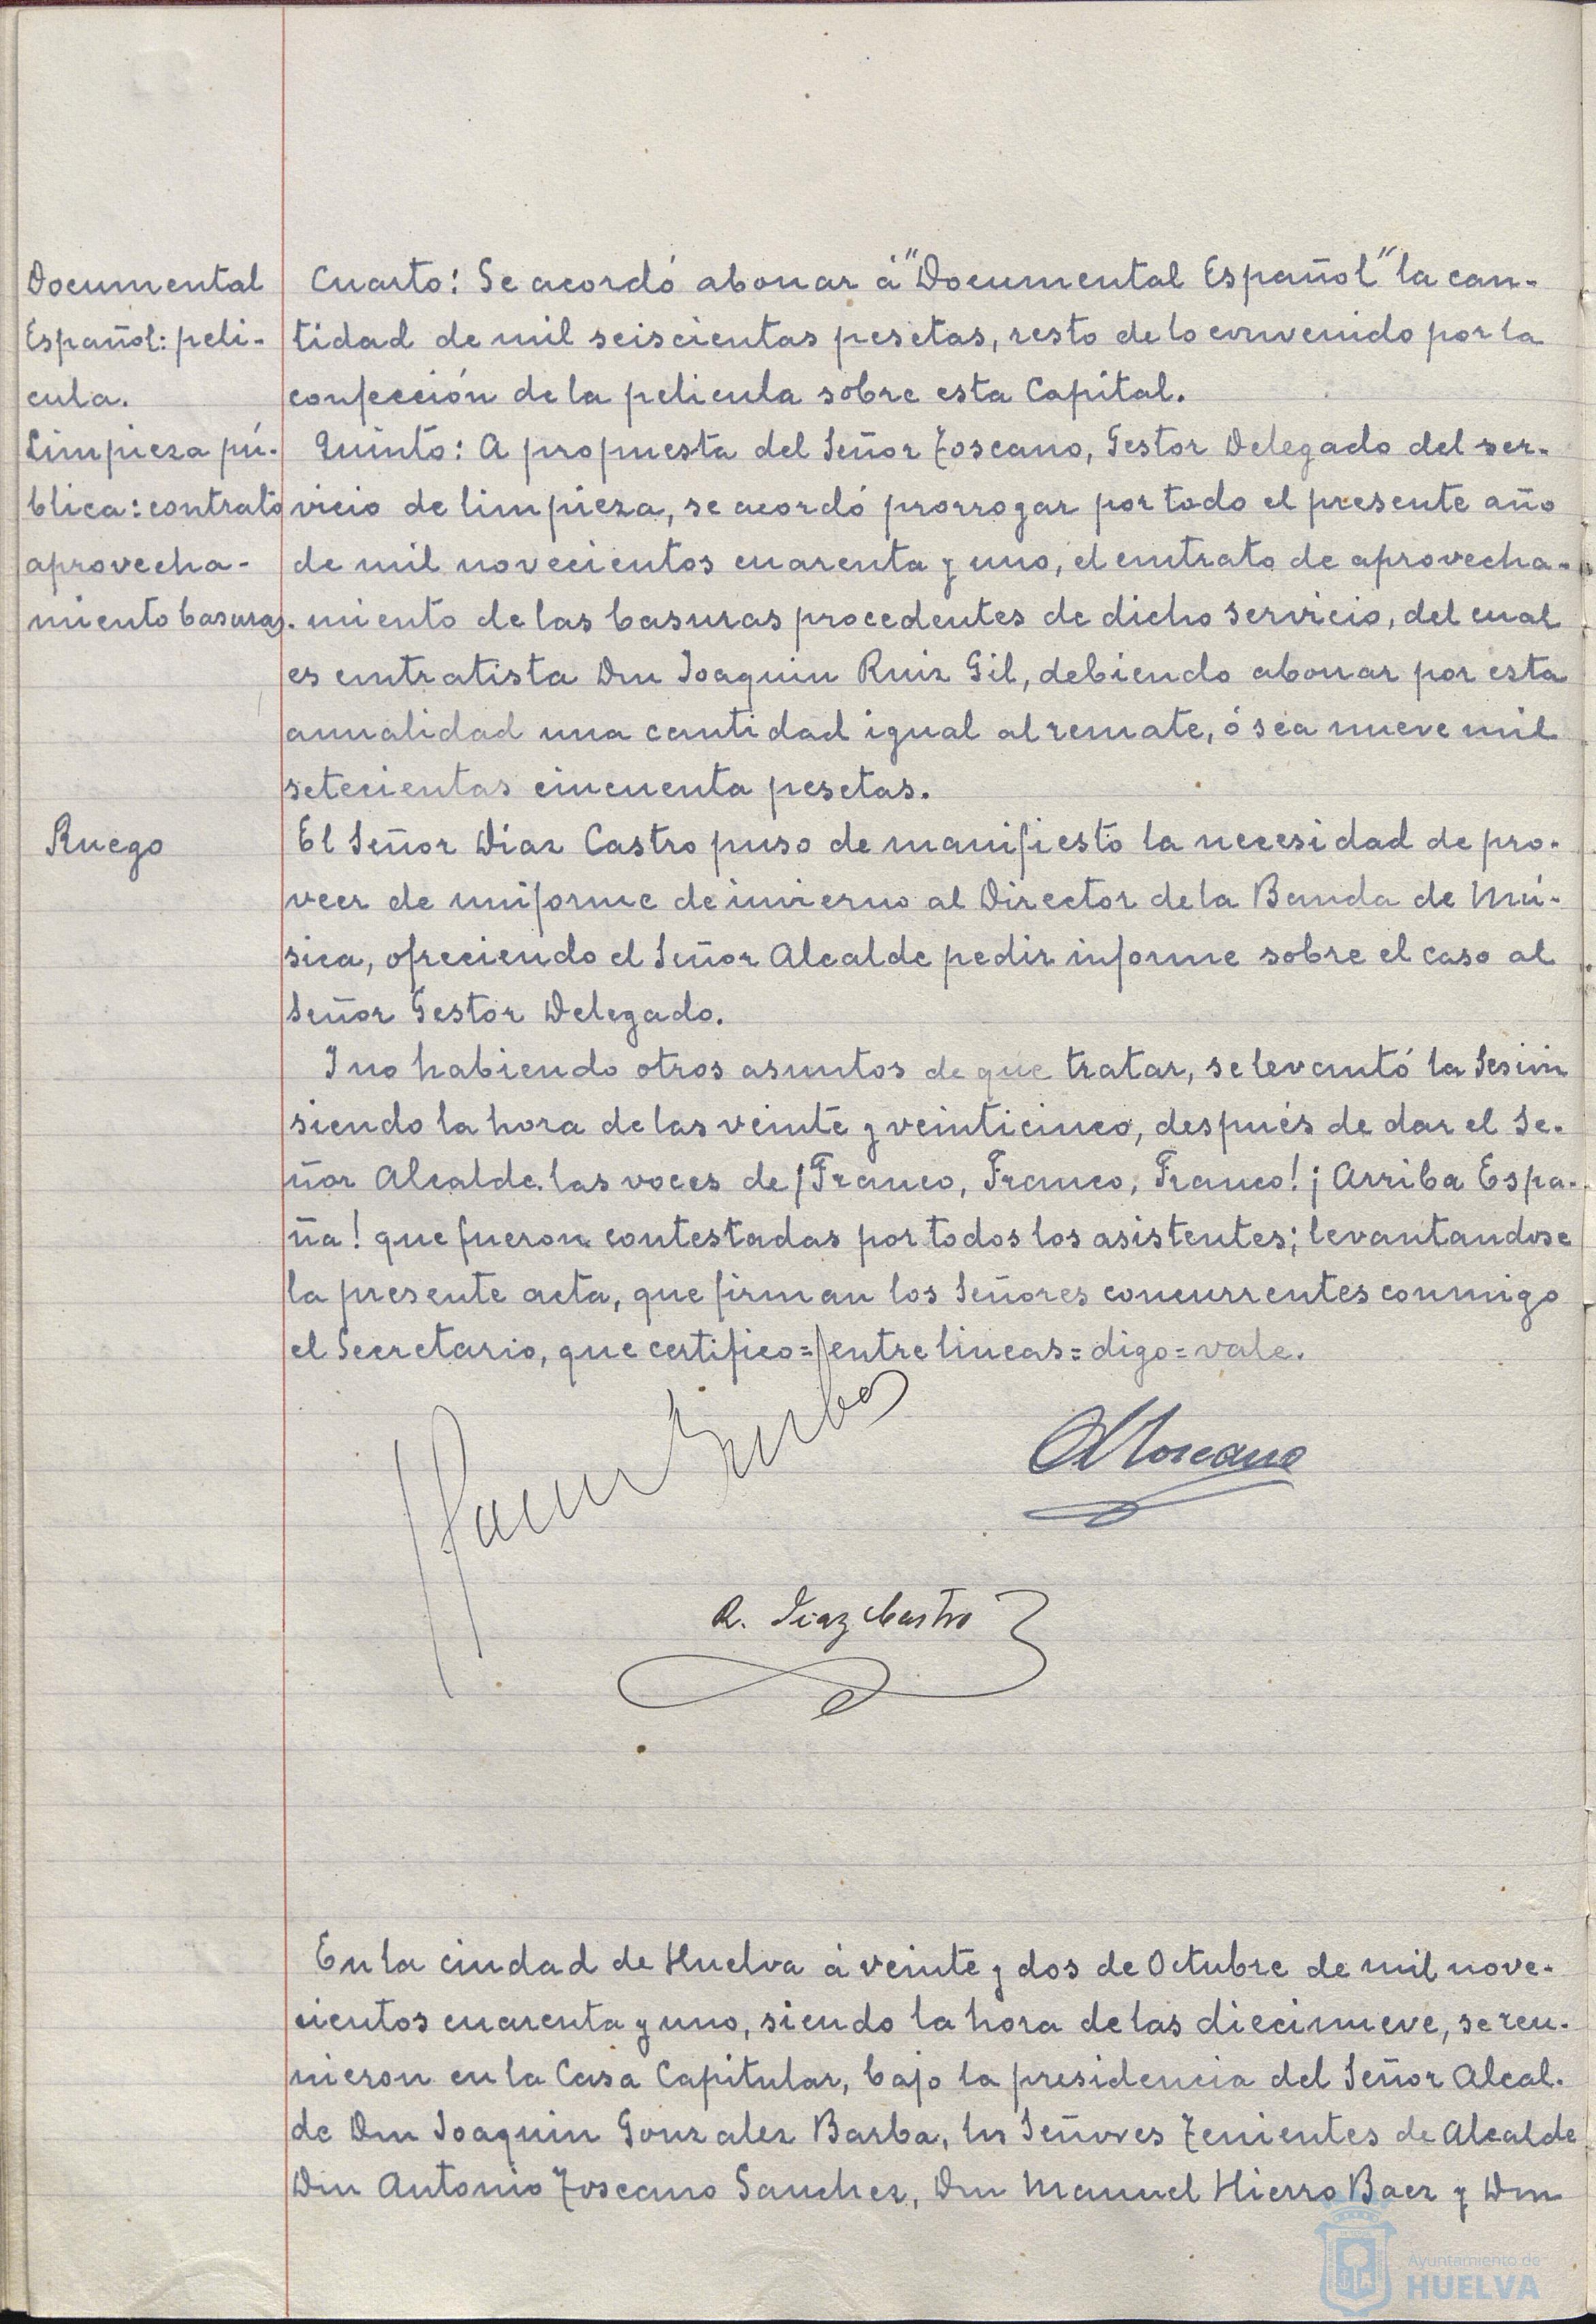 Documental
Español: peli-
cula.
Cuarto: Se acordó abonar á "Documental Español" la can-
tidad de mil seiscientas pesetas, resto de lo convenido por la
confección de la pelicula sobre esta Capital.
Limpieza pú-
blica: contrato
aprovecha-
miento basuras.
Quinto: A propuesta del Señor Toscano, Gestor Delegado del ser-
vicio de limpieza, se acordó prorrogar por todo el presente año
de mil novecientos cuarenta y uno, el contrato de aprovecha-
miento de las basuras procedentes de dicho servicio, del cual
es contratista Don Joaquin Ruiz Gil, debiendo abonar por esta
anualidad una cantidad igual al remate, ó sea nueve mil
setecientas cincuenta pesetas.
Ruego
El Señor Díaz Castro puso de manifiesto la necesidad de pro-
veer de uniforme de invierno al Director de la Banda de Mú-
sica, ofreciendo el Señor Alcalde pedir informe sobre el caso al
Señor Gestor Delegado.
Y no habiendo otros asuntos de que tratar, se levantó la Sesión
siendo la hora de las veinte y veinticinco, después de dar el Se-
ñor Alcalde las voces de ¡Franco, Franco, Franco! ¡Arriba Espa-
ña! que fueron contestadas por todos los asistentes; levantandose
la presente acta, que firman los Señores concurrentes conmigo
el Secretario, que certifico = entre lineas = digo = vale.
Barba
A Toscano
R. Diaz Castro
En la ciudad de Huelva á veinte y dos de Octubre de mil nove-
cientos cuarenta y uno, siendo la hora de las diecinueve, se reu-
nieron en la Casa Capitular, bajo la presidencia del Señor Alcal-
de Don Joaquin Gonzalez Barba, los Señores Tenientes de Alcalde
Don Antonio Toscano Sanchez, Don Manuel Hierro Baez y Don
Ayuntamiento de
HUELVA